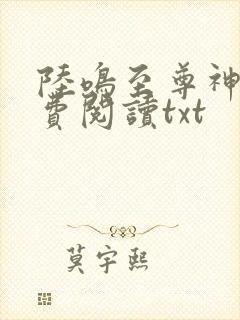 陸鳴至尊神
費閱讀txt
莫宇熙